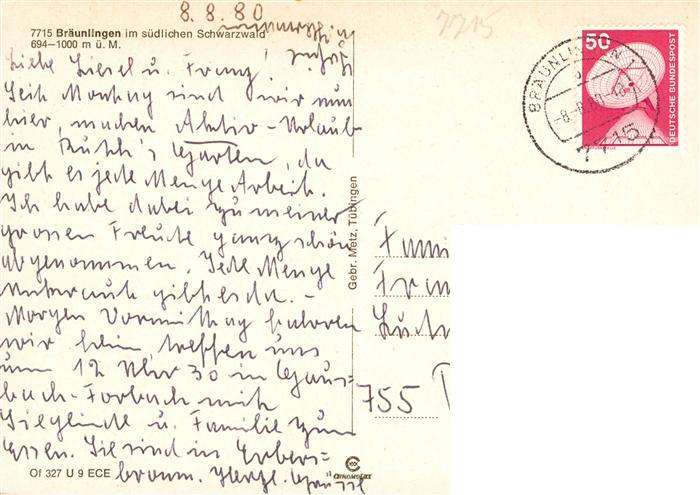 8.8.80
7715
7715 Bräunlingen im südlichen Schwarzwald
694–1000 m ü. M.
Liebe Liesel u. Franz!
Seit Montag sind wir nun
hier, machen Aktiv-Urlaub
in Ruth's Garten, da
gibt es jede Menge Arbeit.
Ich habe dabei zu meiner
grossen Freude ganz schön
abgenommen. Jede Menge
Unkraut gibt es da. –
Morgen Vormittag fahren
wir heim, treffen uns
um 12 Uhr 30 in Gaus-
bach-Forbach mit
Sieglinde u. Familie zum
Essen. Sie sind in Erbers-
bronn. Herzl. Grüsse
Of 327 U 9 ECE
Gebr. Metz, Tübingen
50
DEUTSCHE BUNDESPOST
BRÄUNLINGEN 1
7715
Fami
Fran
755